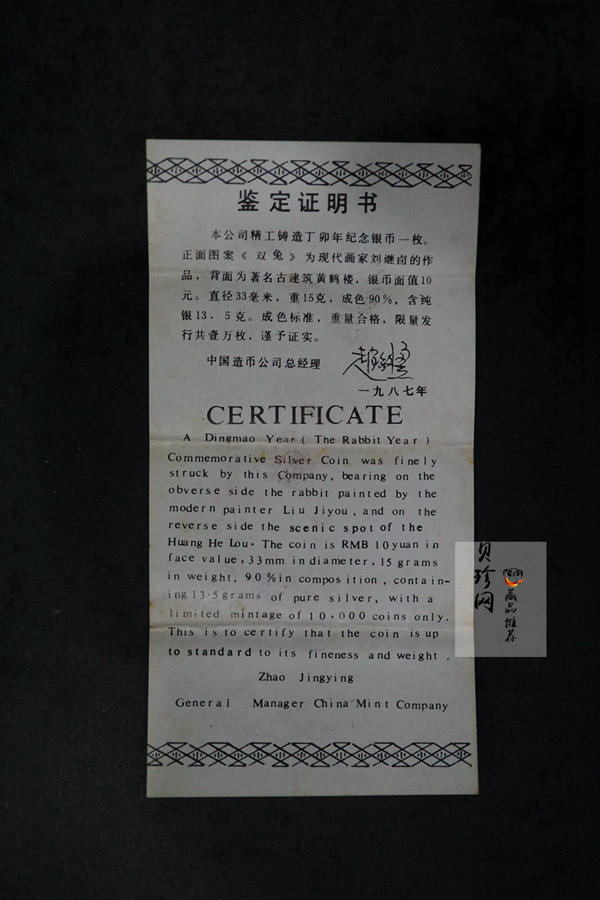 鉴定证明书
本公司精工铸造丁卯年纪念银币一枚。
正面图案《双兔》为现代画家刘继卣的作
品，背面为著名古建筑黄鹤楼，银币面值10
元。直径33毫米，重15克，成色90%，含纯
银13．5克。成色标准，重量合格，限量发
行共壹万枚，谨予证实。
中国造币公司总经理
一九八七年
CERTIFICATE
A Dingmao Year ( The Rabbit Year )
Commemorative Silver Coin was finely
struck by this Company, bearing on the
obverse side the rabbit painted by the
modern painter Liu Jiyou, and on the
reverse side the scenic spot of the
Huang He Lou. The coin is RMB 10 yuan in
face value, 33mm in diameter, 15 grams
in weight, 90% in composition, contain-
ing 13.5 grams of pure silver, with a
limited mintage of 10,000 coins only.
This is to certify that the coin is up
to standard to its fineness and weight.
Zhao Jingying
General Manager China Mint Company
贝珍网
藏品推荐